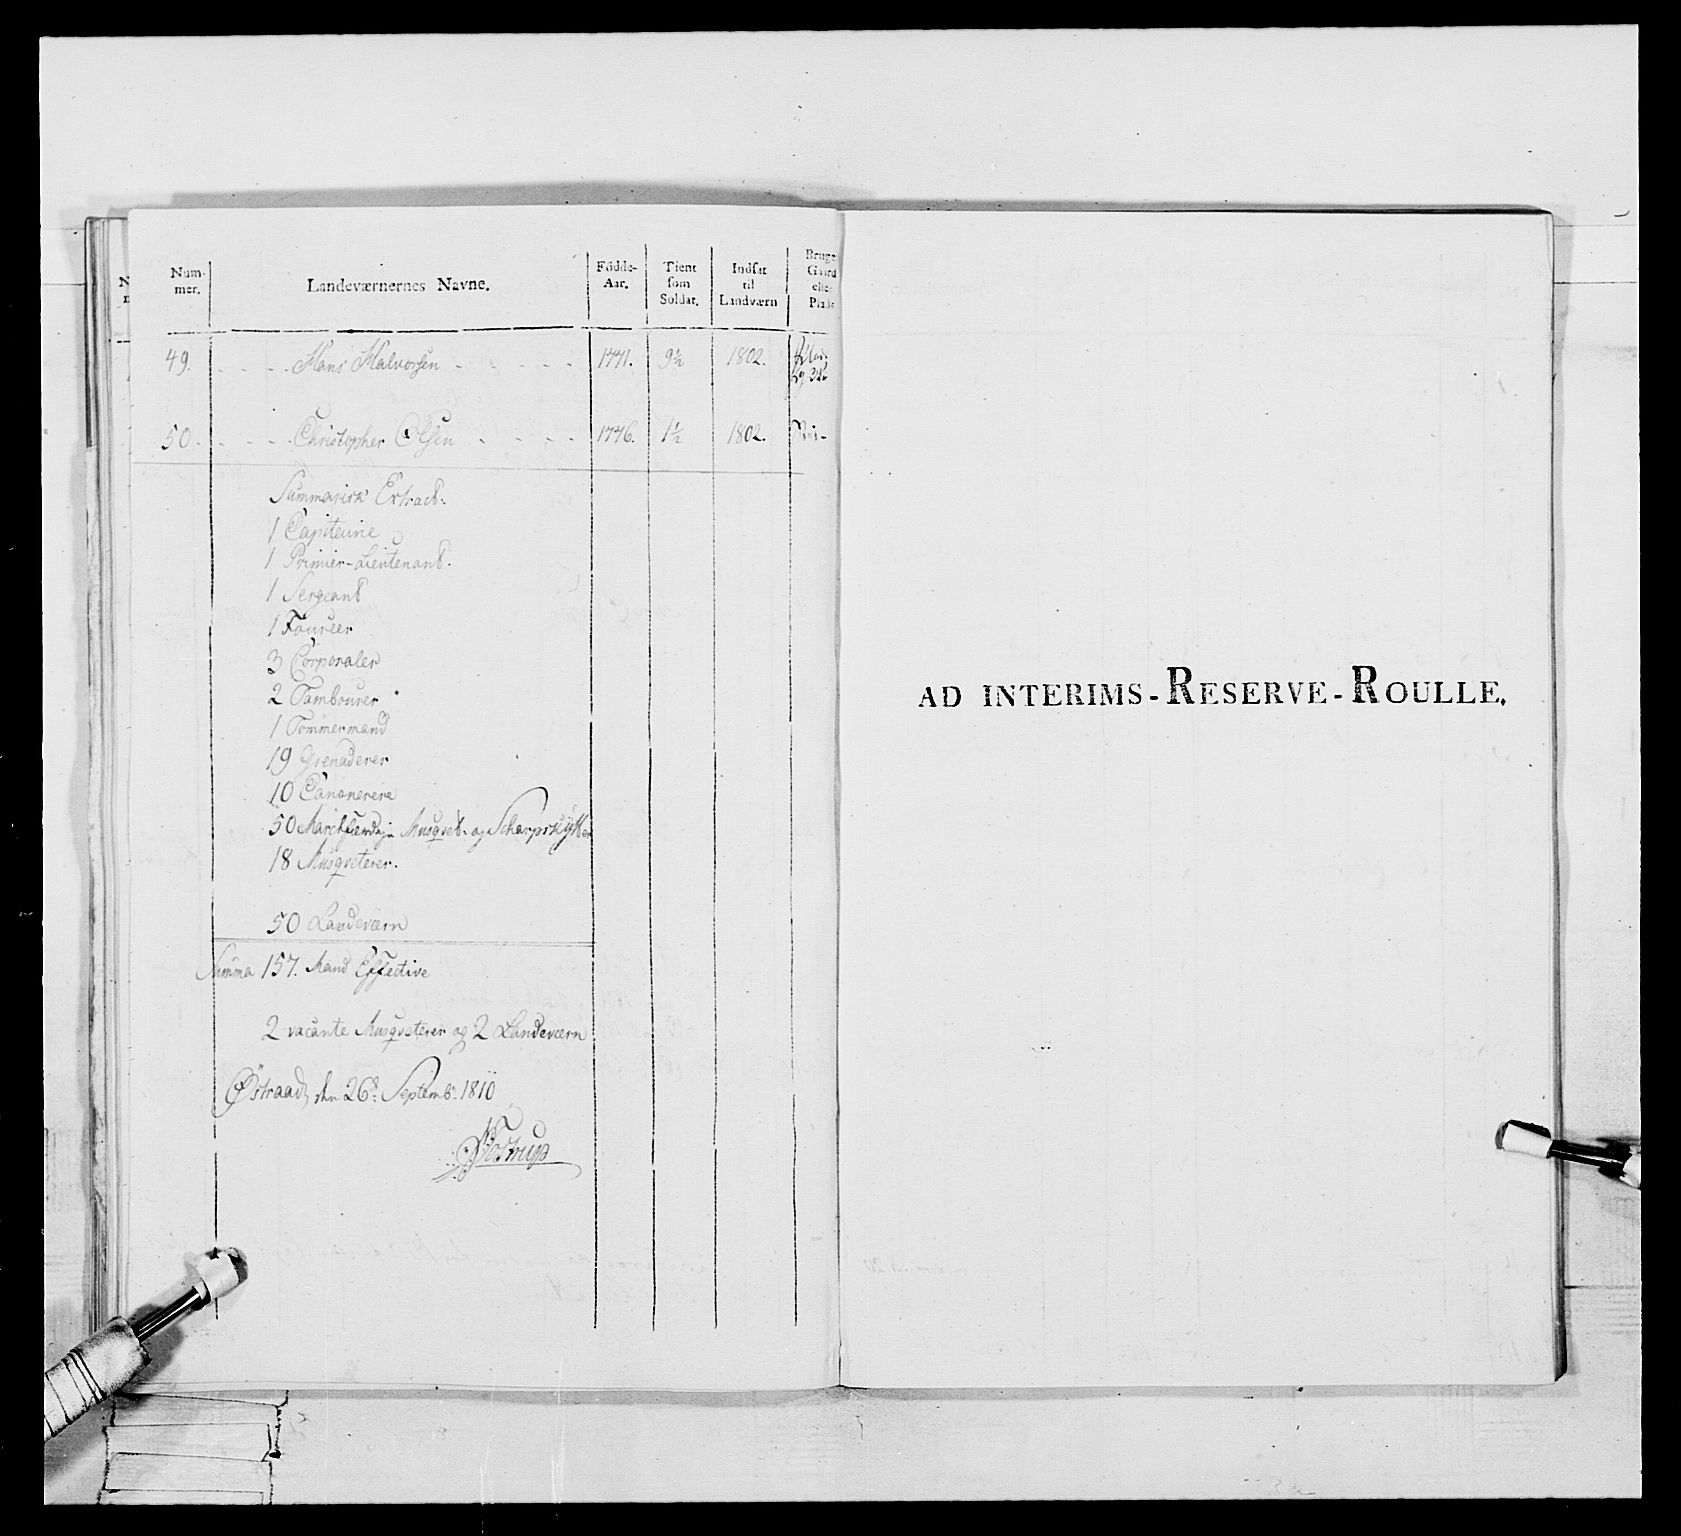 Num-
mer.
Landeværnernes Navne.
Fødde-
Aar.
Tient
som
Soldat.
Indsat
til
Landværn
Bruge
Gaard
eller
Plads
49. Hans Halvorsen 1771. 9½ 1802.
50. Christopher Olsen 1776. 1½ 1802.
Summarisk Extract:
1 Capiteine
1 Primier-Lieutenant.
1 Sergeant
1 Foureer
3 Corporaler
2 Tambourer
1 Tömmermand
19 Grenaderer
10 Canonerere
50 Musqvet- og Scharpskytter
18 Musqveterer.
50 Landeværn
Summa 157. Mand Effective
2 vacante Musqveterer og 2 Landeværn
Østraad den 26de Septembr. 1810
AD INTERIMS-RESERVE-ROULLE.